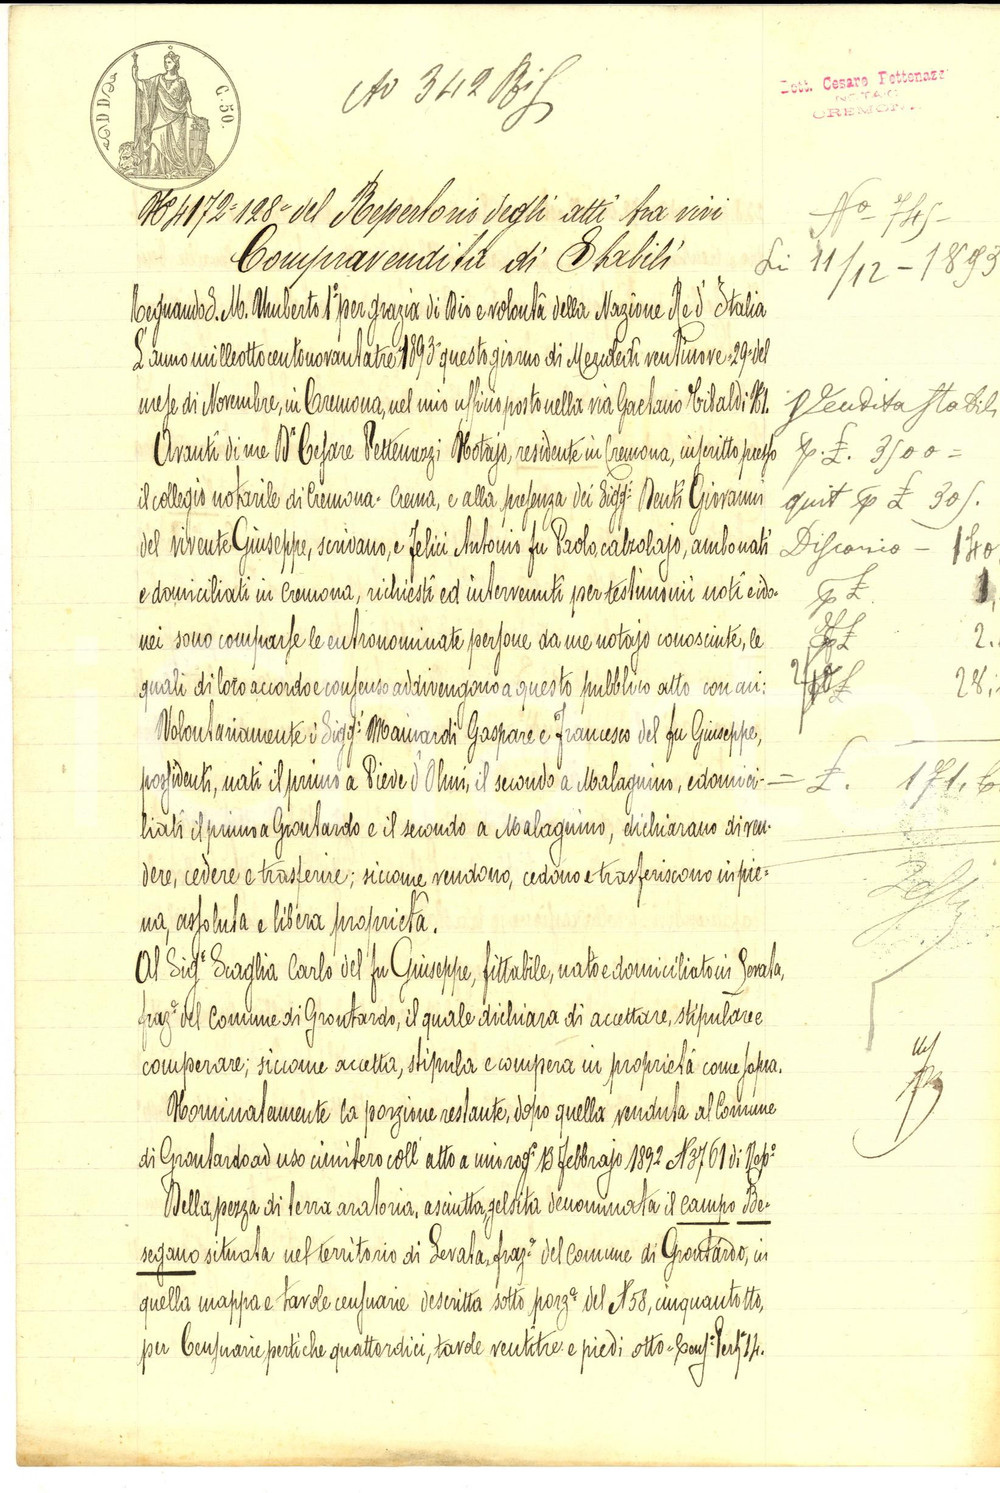 C. 50.
No 342 Bis
Dott. Cesare Pettenazzi
NOTAIO
CREMONA
N 4172-128 del Repertorio degli atti tra vivi
Compravendita di Stabili
No 745
Li 11/12 - 1893
Regnando S. M. Umberto 1° per grazia di Dio e volontà della Nazione Re d'Italia
L'anno milleottocentonovantatre 1893 questo giorno di Mercoledì ventinove 29 del
mese di Novembre, in Cremona, nel mio ufficio posto nella via Gaetano Tibaldi N 1.
Avanti di me Dr Cesare Pettenazzi Notajo, residente in Cremona, inscritto presso
il collegio notarile di Cremona-Crema, e alla presenza dei Sigg.i Denti Giovanni
del vivente Giuseppe, scrivano, e Felici Antonio fu Paolo, calzolajo, ambo nati
e domiciliati in Cremona, richiesti ed intervenuti per testimonii noti e ido-
nei sono comparse le entronominate persone da me notajo conosciute, le
quali di loro accordo e consenso addivengono a questo pubblico atto con cui:
Volontariamente i Sigg.i Mainardi Gaspare e Francesco del fu Giuseppe,
possidenti, nati il primo a Pieve d'Olmi, il secondo a Malagnino, e domici-
liati il primo a Grontardo e il secondo a Malagnino, dichiarano di ven-
dere, cedere e trasferire; siccome vendono, cedono e trasferiscono in pie-
na, assoluta e libera proprietà.
Al Sig.r Scaglia Carlo del fu Giuseppe, fittabile, nato e domiciliato in Levata,
fraz.e del Comune di Grontardo, il quale dichiara di accettare, stipulare e
comperare; siccome accetta, stipula e compera in proprietà come sopra.
Nominatamente la porzione restante, dopo quella venduta al Comune
di Grontardo ad uso cimitero coll'atto a mio rog.o 13 febbrajo 1892 N 3761 di Rep.o
Della pezza di terra aratoria, asciutta, gelsita denominata il campo Be-
segano situata nel territorio di Levata, fraz.e del Comune di Grontardo, in
quella mappa e tavole censuarie descritta sotto porz.e del N 58, cinquantotto,
per Censuarie pertiche quattordici, tavole ventitre e piedi otto = Cens.e Pert.e 14.
Vendita stabili
p. £. 3500 =
quit p £ 305.
p £
2.
28,
= £. 171.